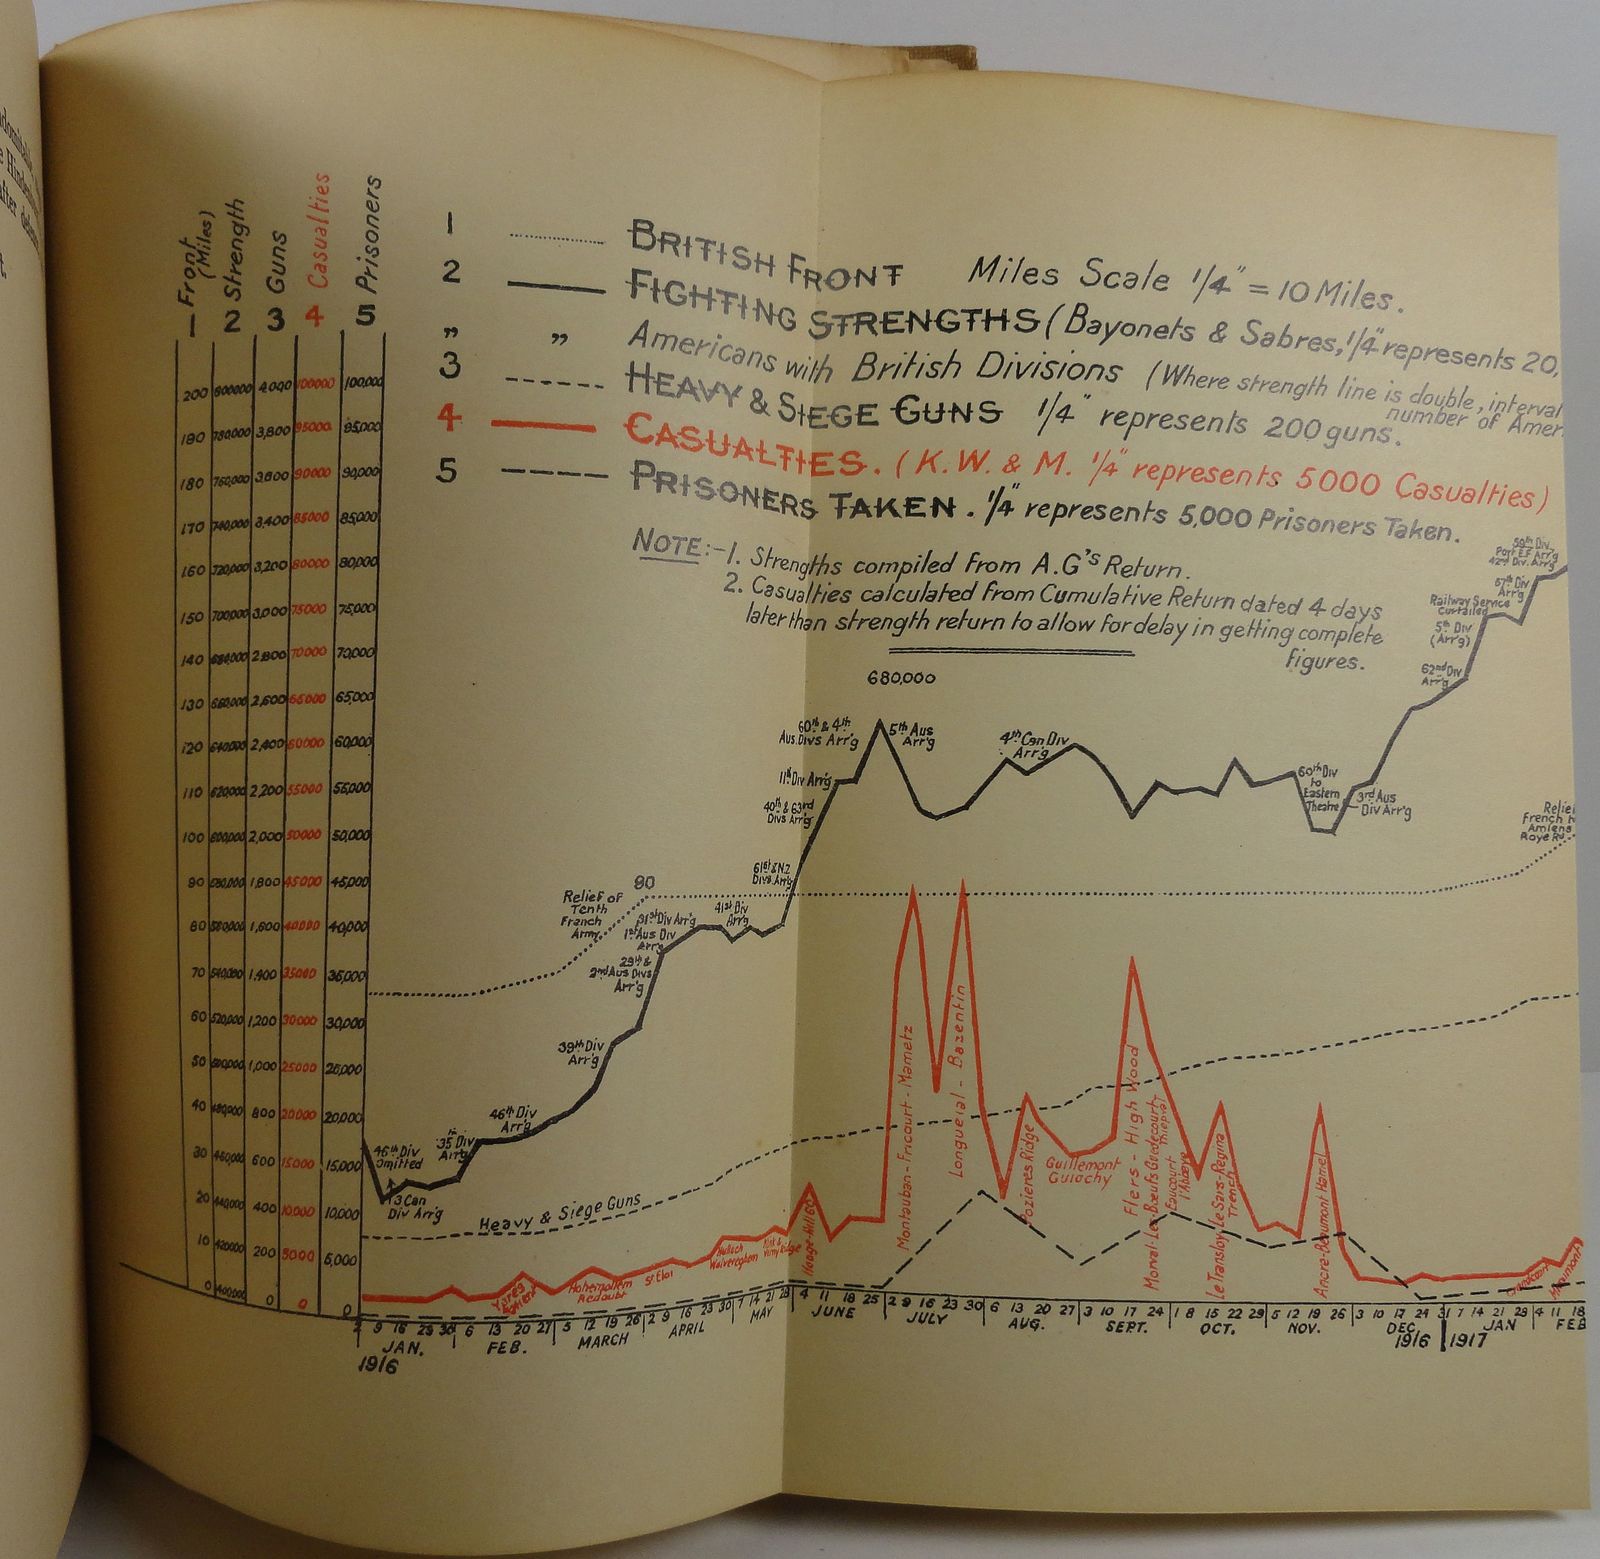 domitable
Hindenburg
after
t.
1 Front (Miles)
2 Strength
3 Guns
4 Casualties
5 Prisoners
1 BRITISH FRONT Miles Scale 1/4" = 10 Miles.
2 FIGHTING STRENGTHS (Bayonets & Sabres, 1/4" represents 20,
" " Americans with British Divisions (Where strength line is double, interval
number of Amer
3 HEAVY & SIEGE GUNS 1/4" represents 200 guns.
4 CASUALTIES. (K.W. & M. 1/4" represents 5000 Casualties)
5 PRISONERS TAKEN. 1/4" represents 5,000 Prisoners Taken.
NOTE:-1. Strengths compiled from A.G's Return.
2. Casualties calculated from Cumulative Return dated 4 days
later than strength return to allow for delay in getting complete
figures.
200 800,000 4,000 100000 100,000
190 780,000 3,800 95000 95,000
180 760,000 3,600 90000 90,000
170 740,000 3,400 85000 85,000
160 720,000 3,200 80000 80,000
150 700,000 3,000 75000 75,000
140 680,000 2,800 70000 70,000
130 660,000 2,600 65000 65,000
120 640,000 2,400 60000 60,000
110 620,000 2,200 55000 55,000
100 600,000 2,000 50000 50,000
90 580,000 1,800 45000 45,000
80 560,000 1,600 40000 40,000
70 540,000 1,400 35000 35,000
60 520,000 1,200 30000 30,000
50 500,000 1,000 25000 25,000
40 480,000 800 20000 20,000
30 460,000 600 15000 15,000
20 440,000 400 10,000 10,000
10 420,000 200 5000 5,000
0 400,000 0 0 0
59th Div
Port E.F. Arr'g
42nd Div. Arr'g
57th Div
Arr'g
Railway Service
Curtailed
5th Div
(Arr'g)
62nd Div
Arr'g
680,000
60th & 4th
Aus. Divs Arr'g
5th Aus
Arr'g
4th Can Div
Arr'g
11th Div Arr'g
40th & 63rd
Divs Arr'g
60th Div
to
Eastern
Theatre
3rd Aus
Div Arr'g
Relief
French
Amiens
Roye Rd
61st & N.Z
Divs Arr'g
80
Relief of
Tenth
French
Army
31st Div Arr'g
1st Aus Div
Arr'g
41st Div
Arr'g
29th &
2nd Aus Divs
Arr'g
39th Div
Arr'g
46th Div
Arr'g
35 Div
Arr'g
46th Div
Omitted
3 Can
Div Arr'g
Heavy & Siege Guns
Ypres
Hohenzollern
Redoubt
St Eloi
Hulloch
Wulverghem
Vimy Ridge
Hooge-Hill 60
Montauban-Fricourt-Mametz
Longueval-Bazentin
Pozieres Ridge
Guillemont
Guinchy
Flers - High Wood
Morval-Les Boeufs Guedecourt
Thiepval
Eaucourt
l'Abbaye
Le Transloy Le Sars-Regina
Trench
Ancre-Beaumont Hamel
2 9 16 23 30 6 13 20 27 5 12 19 26 2 9 16 23 30 7 14 21 28 4 11 18 25 2 9 16 23 30 6 13 20 27 3 10 17 24 1 8 15 22 29 5 12 19 26 3 10 17 24 31 7 14 21 28 4 11 18
JAN. FEB. MARCH APRIL MAY JUNE JULY AUG. SEPT. OCT. NOV. DEC. JAN FEB
1916 1916 1917